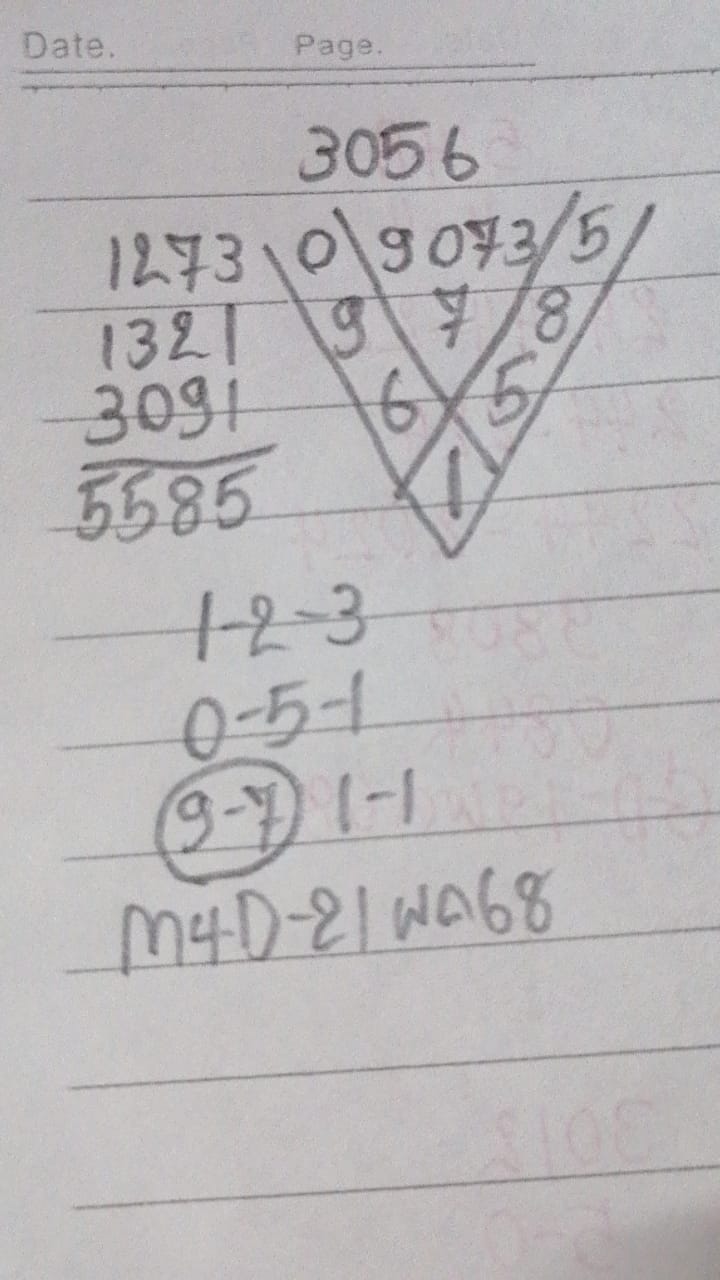 Date. Page.
3056
1273 0 9073 5
1321 9 7 8
3091 6 5
5585 1
1-2-3
0-5-1
9-7 1-1
M4D-21 WA68